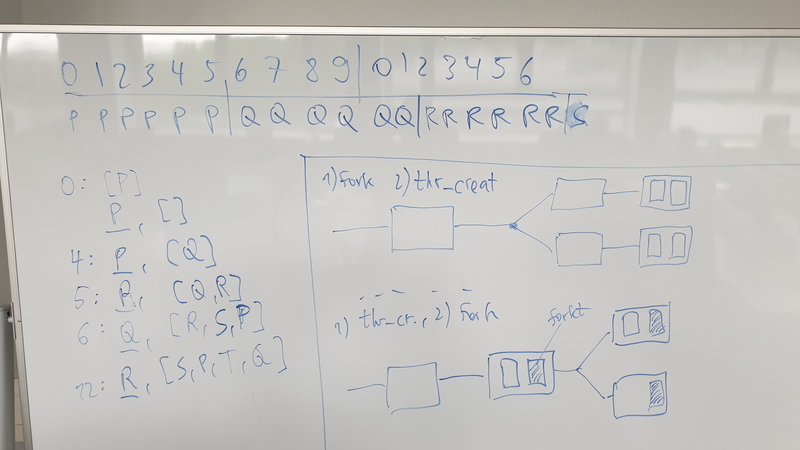 0 1 2 3 4 5 6 7 8 9 0 1 2 3 4 5 6
P P P P P P Q Q Q Q Q Q R R R R R R S
0: [P]
P, []
4: P, [Q]
5: R, [Q,R]
6: Q, [R,S,P]
12: R, [S,P,T,Q]
1) fork 2) thr_creat
1) thr_cr., 2) Fork
forkt